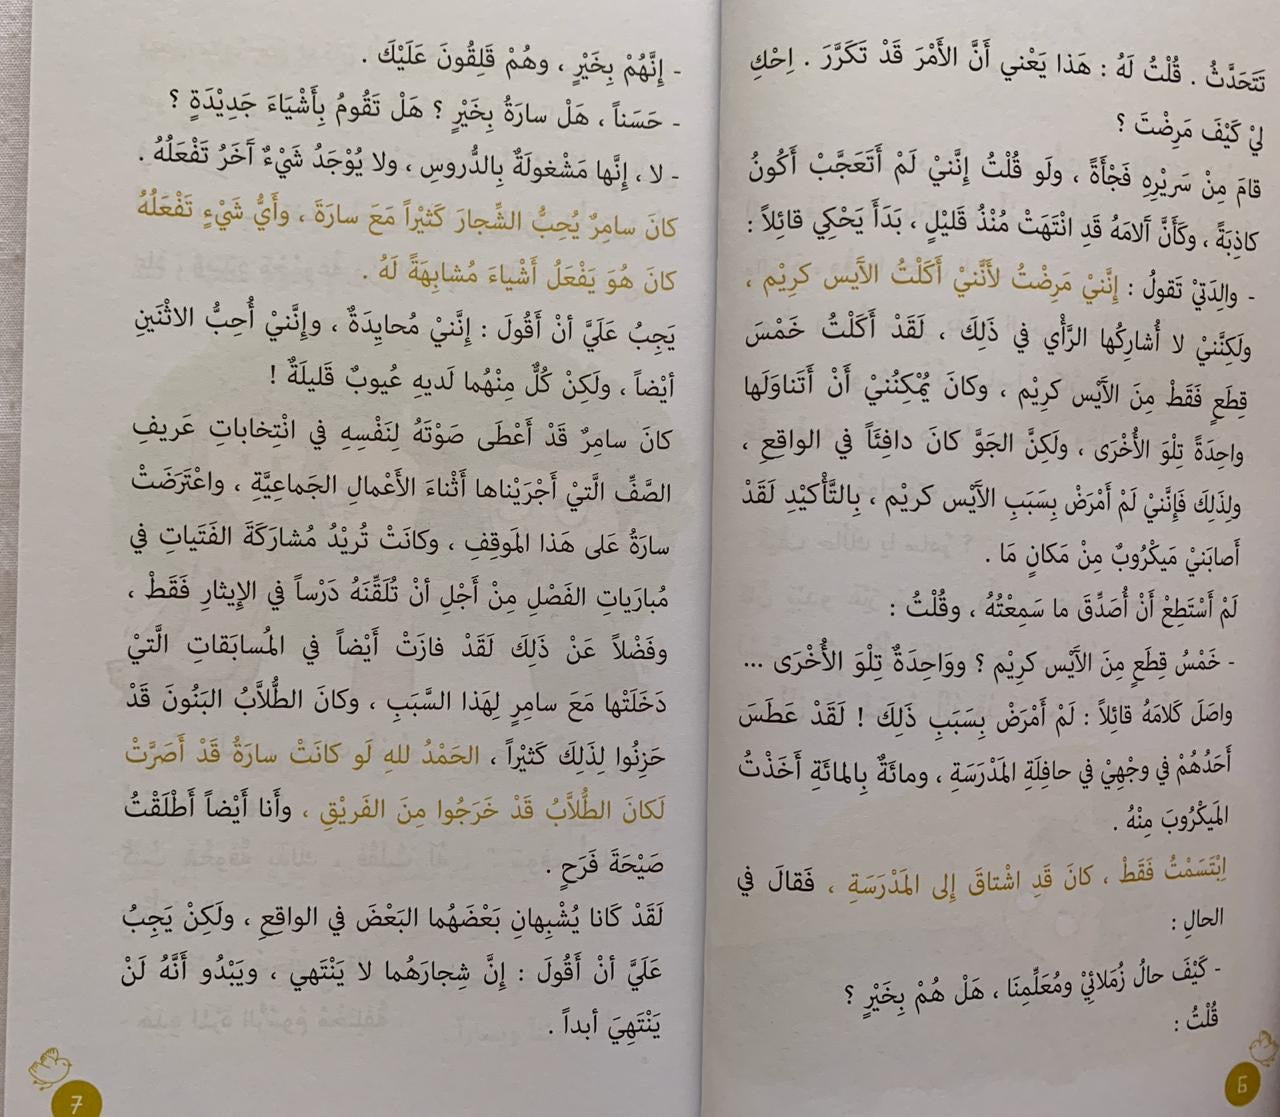 تَتَحَدَّثُ . قُلْتُ لَهُ : هَذا يَعْني أَنَّ الأَمْرَ قَدْ تَكَرَّرَ . اِحْكِ
لِيْ كَيْفَ مَرِضْتَ ؟
قامَ مِنْ سَرِيْرِهِ فَجْأَةً ، ولَو قُلْتُ إِنَّنيْ لَمْ أَتَعَجَّبْ أَكُونُ
كاذِبَةً ، وكَأَنَّ آلامَهُ قَدِ انْتَهَتْ مُنْذُ قَليْلٍ ، بَدَأَ يَحْكِي قائِلاً :
- والِدَتيْ تَقولُ : إِنَّنيْ مَرِضْتُ لأَنَّنيْ أَكَلْتُ الآَيس كرِيْم ،
ولَكِنَّنيْ لا أُشارِكُها الرَّأْي في ذَلِكَ ، لَقَدْ أَكَلْتُ خَمْسَ
قِطَعٍ فَقَطْ مِنَ الآَيْس كرِيْم ، وكانَ يُمْكِنُنيْ أَنْ أَتَناوَلَها
واحِدَةً تِلْوَ الأُخْرَى ، ولَكِنَّ الجَوَّ كانَ دافِئَاً في الواقِعِ ،
ولِذَلِكَ فَإِنَّنيْ لَمْ أَمْرَضْ بِسَبَبِ الآَيْس كريْم ، بِالتَّأْكيْدِ لَقَدْ
أَصابَنيْ مَيكْرُوبٌ مِنْ مَكانٍ مَا .
لَمْ أَسْتَطِعْ أَنْ أُصَدِّقَ ما سَمِعْتُهُ ، وقُلْتُ :
- خَمْسُ قِطَعٍ مِنَ الآَيْس كرِيْم ؟ ووَاحِدَةٌ تِلْوَ الأُخْرَى ...
واصَلَ كَلامَهُ قائِلاً : لَمْ أَمْرَضْ بِسَبَبِ ذَلِكَ ! لَقَدْ عَطَسَ
أَحَدُهُمْ في وَجْهِيْ في حافِلَةِ المَدْرَسَةِ ، ومائَةٌ بِالمائَةِ أَخَذْتُ
المَيكْرُوبَ مِنْهُ .
اِبْتَسَمْتُ فَقَطْ ، كانَ قَدِ اشْتاقَ إِلى المَدْرَسَةِ ، فَقالَ في
الحالِ :
- كَيْفَ حالُ زُمَلائِيْ ومُعَلِّمِنَا ، هَلْ هُمْ بِخَيْرٍ ؟
قُلْتُ :
6
- إِنَّهُمْ بِخَيْرٍ ، وهُمْ قَلِقُونَ عَلَيْكَ .
- حَسَناً ، هَلْ سارَةُ بِخَيْرٍ ؟ هَلْ تَقُومُ بِأَشْيَاءَ جَدِيْدَةٍ ؟
- لا ، إِنَّها مَشْغولَةٌ بِالدُّروسِ ، ولا يُوْجَدُ شَيْءٌ آخَرُ تَفْعَلُهُ .
كانَ سامِرٌ يُحِبُّ الشِّجارَ كَثيْراً مَعَ سارَةَ ، وأَيُّ شَيْءٍ تَفْعَلُهُ
كانَ هُوَ يَفْعَلُ أَشْياءَ مُشابِهَةً لَهُ .
يَجِبُ عَلَيَّ أنْ أَقُولَ : إِنَّنيْ مُحايِدَةٌ ، وإِنَّنيْ أُحِبُّ الاثْنَينِ
أيْضاً ، ولَكِنْ كُلٌّ مِنْهُما لَديهِ عُيوبٌ قَليلَةٌ !
كانَ سامِرٌ قَدْ أَعْطَى صَوْتَهُ لِنَفْسِهِ في انْتِخاباتِ عَريفِ
الصَّفِّ الَّتيْ أَجْرَيْناها أَثْناءَ الأَعْمالِ الجَماعِيَّةِ ، واعْتَرَضَتْ
سارَةُ عَلى هَذا المَوقِفِ ، وكانَتْ تُرِيْدُ مُشارَكَةَ الفَتَياتِ في
مُبارَياتِ الفَصْلِ مِنْ أَجْلِ أنْ تُلَقِّنَهُ دَرْساً في الإيثارِ فَقَطْ ،
وفَضْلاً عَنْ ذَلِكَ لَقَدْ فازَتْ أَيْضاً في المُسابَقاتِ الَّتيْ
دَخَلَتْها مَعَ سامِرٍ لِهَذا السَّبَبِ ، وكانَ الطُّلاَّبُ البَنُونَ قَدْ
حَزِنُوا لِذَلِكَ كَثيْراً ، الحَمْدُ للهِ لَو كانَتْ سارَةُ قَدْ أَصَرَّتْ
لَكانَ الطُّلاَّبُ قَدْ خَرَجُوا مِنَ الفَريْقِ ، وأَنا أَيْضاً أَطْلَقْتُ
صَيْحَةَ فَرَحٍ .
لَقَدْ كَانا يُشْبِهانِ بَعْضَهُما البَعْضَ في الواقِعِ ، ولَكِنْ يَجِبُ
عَلَيَّ أنْ أَقُولَ : إِنَّ شِجارَهُما لا يَنْتَهي ، ويَبْدُو أَنَّهُ لَنْ
يَنْتَهِيَ أبداً .
7